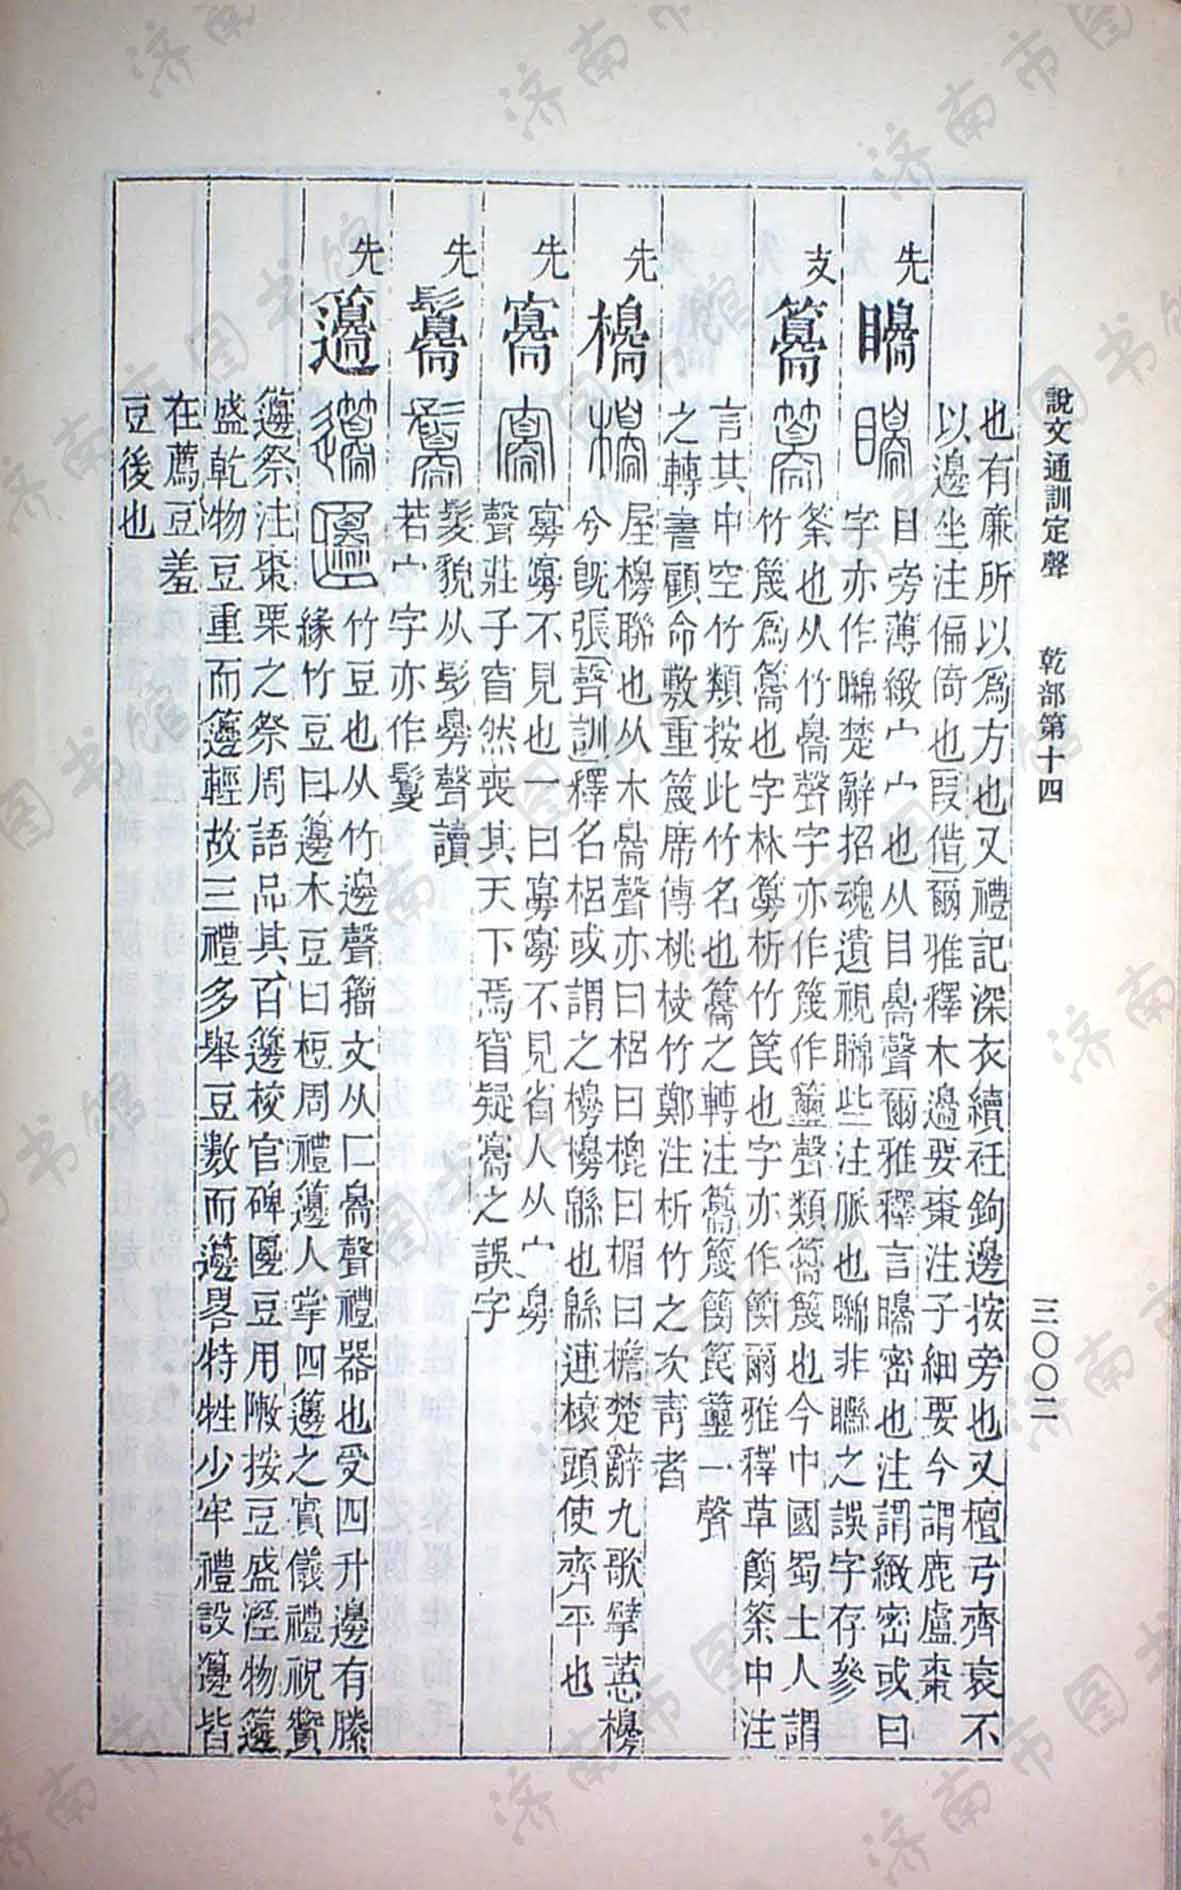 說文通訓定聲　乾部第十四　三〇〇二
也有廉所以為方也又禮記深衣續衽鉤邊按旁也又檀弓齊衰不
以邊坐注偏倚也叚借爾雅釋木邊要棗注子細要今謂鹿盧棗
先 矏 目旁薄緻宀宀也从目𦤝聲爾雅釋言矏密也注謂緻密或曰
字亦作矊楚辭招魂遺視矊些注脈也矊非矊之誤字存參
支 𥷚 筡也从竹𦤝聲字亦作篾作𥷚聲類𥷚篾也今中國蜀土人謂
竹篾為𥷚也字林𥷚析竹笢也字亦作䉲爾雅釋草䉲筡中注
言其中空竹類按此竹名也𥷚之轉注𥷚篾䉲笢一聲
之轉書顧命敷重篾席傳桃枝竹鄭注析竹之次青者
先 櫋 屋櫋聯也从木𦤝聲亦曰梠曰梍曰楣曰檐楚辭九歌擘蕙櫋
兮旣張聲訓釋名梠或謂之櫋櫋緜也緜連榱頭使齊平也
先 𡫸 寡寡不見也一曰寡寡不見省人从宀𦤝
聲莊子窅然喪其天下焉窅疑𡫸之誤字
先 鬗 髮貌从髟𦤝聲讀
若宀字亦作鬘
先 籩 竹豆也从竹邊聲籀文从匚𦤝聲禮器也受四升邊有縢
緣竹豆曰籩木豆曰梪周禮籩人掌四籩之實儀禮祝贊
籩祭注棗栗之祭周語品其百籩校官碑匴豆用陳按豆盛溼物籩
盛乾物豆重而籩輕故三禮多舉豆數而籩畧特牲少牢禮設籩皆
在薦豆羞
豆後也
济南市图书馆